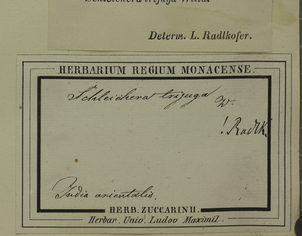 Schleichera trijuga Willd.
Determ. L. Radlkofer.
HERBARIUM REGIUM MONACENSE.
Schleichera trijuga W.
! Radlk.
India orientalis.
HERB. ZUCCARINII.
Herbar. Univ. Ludov. Maximil.